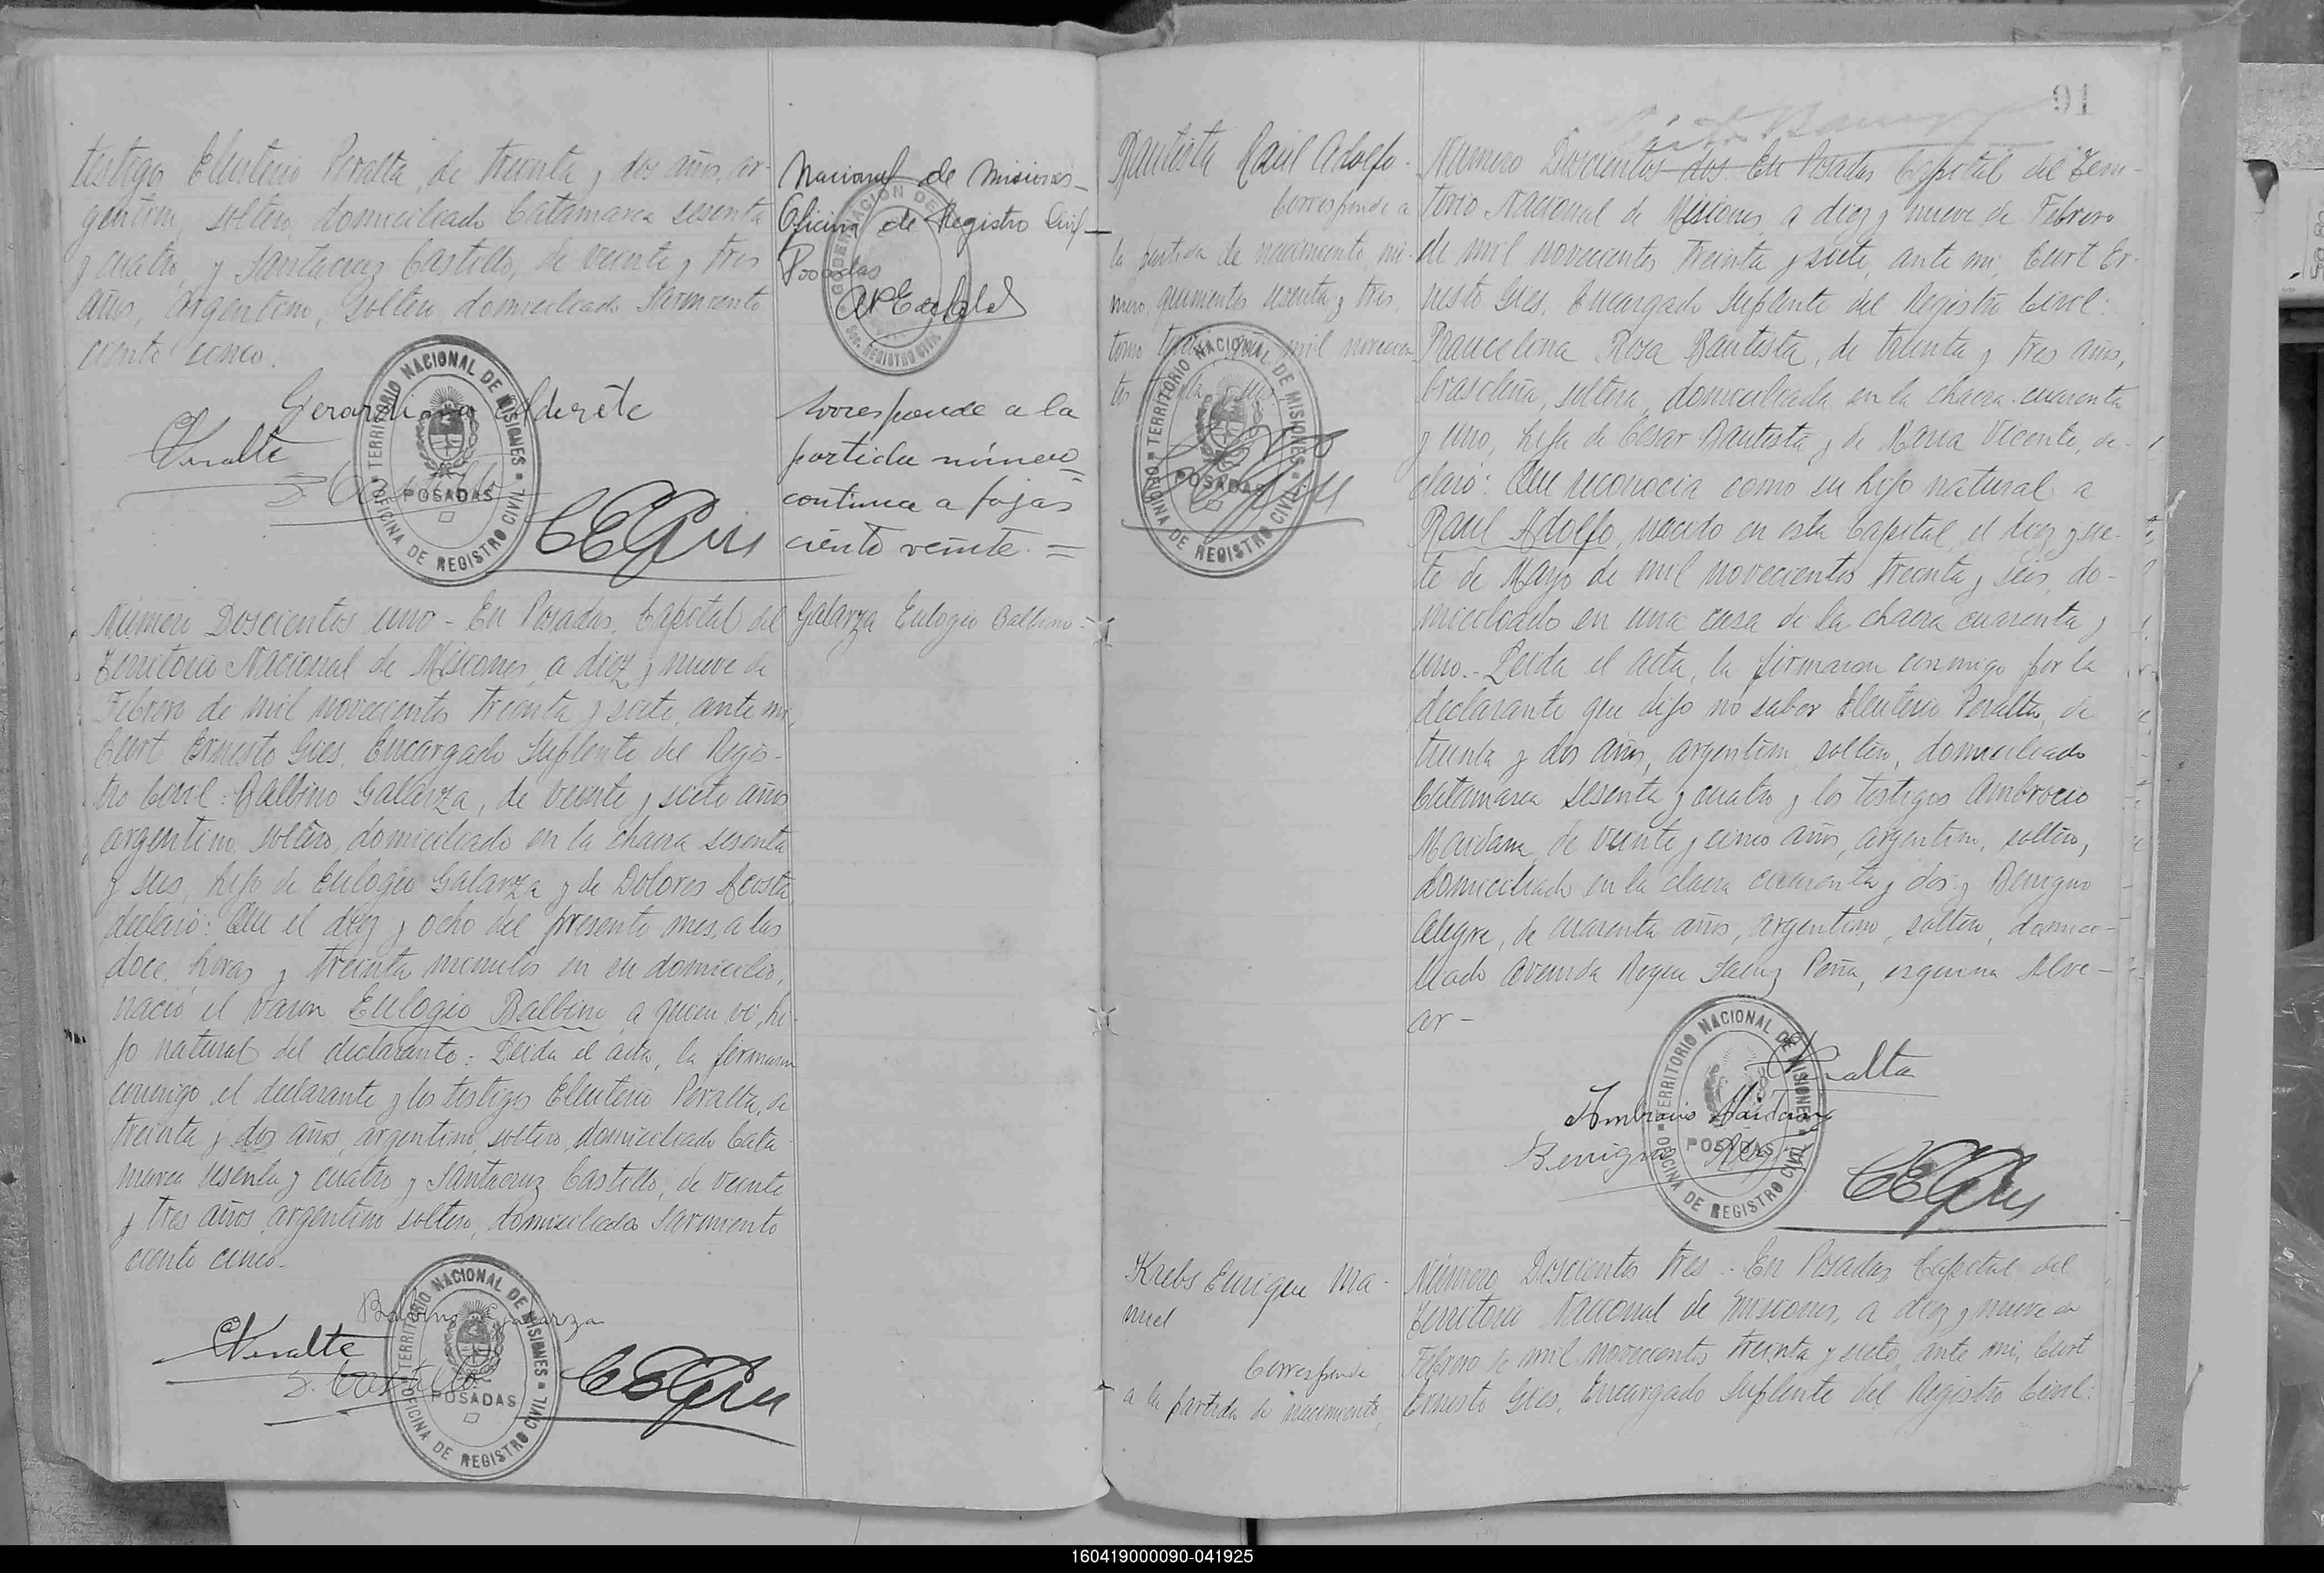 testigo Eleuterio Peralta, de treinta y dos años, ar-
gentino, soltero, domiciliado Catamarca sesenta
y cuatro, y Santacruz Castillo, de veinte y tres
años, argentino, soltero domiciliado Sarmiento
ciento cinco.
Gerardiana Alderete
Peralta
S. Castillo
CEGies
TERRITORIO NACIONAL DE MISIONES
POSADAS
OFICINA DE REGISTRO CIVIL
Nacional de Misiones
Oficina de Registro Civil
Posadas
GOBERNACION DE
REGISTRO CIVIL
Corresponde a la
partida número
continua a fojas
ciento veinte. =
Número Doscientos uno - En Posadas, Capital del
Territorio Nacional de Misiones, a diez y nueve de
Febrero de mil novecientos treinta y siete, ante mi,
Curt Ernesto Gies, Encargado Suplente del Regis-
tro Civil: Balbino Galarza, de veinte y siete años
argentino, soltero, domiciliado en la chacra sesenta
y seis, hijo de Eulogio Galarza y de Dolores Acosta
declaró: Que el diez y ocho del presente mes, a las
doce horas y treinta minutos en su domicilio,
nació el varon Eulogio Balbino, a quien vi, hi-
jo natural del declarante. Leida el acta, la firmaron
conmigo el declarante y los testigos Eleuterio Peralta, de
treinta y dos años, argentino, soltero, domiciliado Cata-
marca sesenta y cuatro y Santacruz Castillo, de veinte
y tres años argentino soltero, domiciliado Sarmiento
ciento cinco.
Galarza Eulogio Balbino
Balbino Galarza
Peralta
S. Castillo
CEGies
TERRITORIO NACIONAL DE MISIONES
POSADAS
OFICINA DE REGISTRO CIVIL
91
Bautista Raúl Adolfo.
Corresponde a
la partida de nacimiento nú-
mero quinientos sesenta y tres
tomo mil novecien
tos
TERRITORIO NACIONAL DE MISIONES
POSADAS
OFICINA DE REGISTRO CIVIL
Número Doscientos dos En Posadas Capital del Terri-
torio Nacional de Misiones, a diez y nueve de Febrero
de mil novecientos treinta y siete, ante mi, Curt Er-
nesto Gies, Encargado Suplente del Registro Civil:
Francelina Rosa Bautista, de treinta y tres años,
brasileña, soltera, domiciliada en la chacra cuarenta
y uno, hija de Cesar Bautista y de Maria Vicente, de-
claró: Que reconocia como su hijo natural a
Raul Adolfo, nacido en esta Capital, el diez y sie-
te de Mayo de mil novecientos treinta y seis, do-
miciliado en una casa de la chacra cuarenta y
uno.- Leida el acta, la firmaron conmigo por la
declarante que dijo no saber Eleuterio Peralta, de
treinta y dos años, argentino, soltero, domiciliado
Catamarca sesenta y cuatro y los testigos Ambrocio
Maidana, de veinte y cinco años, argentino, soltero,
domiciliado en la chacra cuarenta y dos y Benigno
Alegre, de cuarenta años, argentino, soltero, domici-
liado Avenida Roque Saenz Peña, esquina Alve-
ar -
Peralta
Ambrocio Maidana
Benigno Alegre
CEGies
TERRITORIO NACIONAL DE MISIONES
POSADAS
OFICINA DE REGISTRO CIVIL
Krebs Enrique Ma-
nuel
Corresponde
a la partida de nacimiento,
Número Doscientos tres - En Posadas Capital del
Territorio Nacional de Misiones, a diez y nueve de
Febrero de mil novecientos treinta y siete, ante mi, Curt
Ernesto Gies, Encargado Suplente del Registro Civil:
160419000090-041925